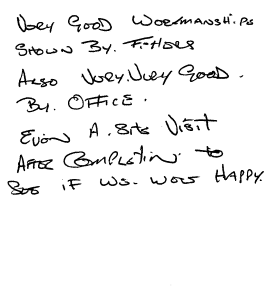 Very Good Workmanships
Shown By. Fitters
Also Very.Very Good.
By. Office.
Even A. Site Visit
After Completion. to
See if We. Were Happy.